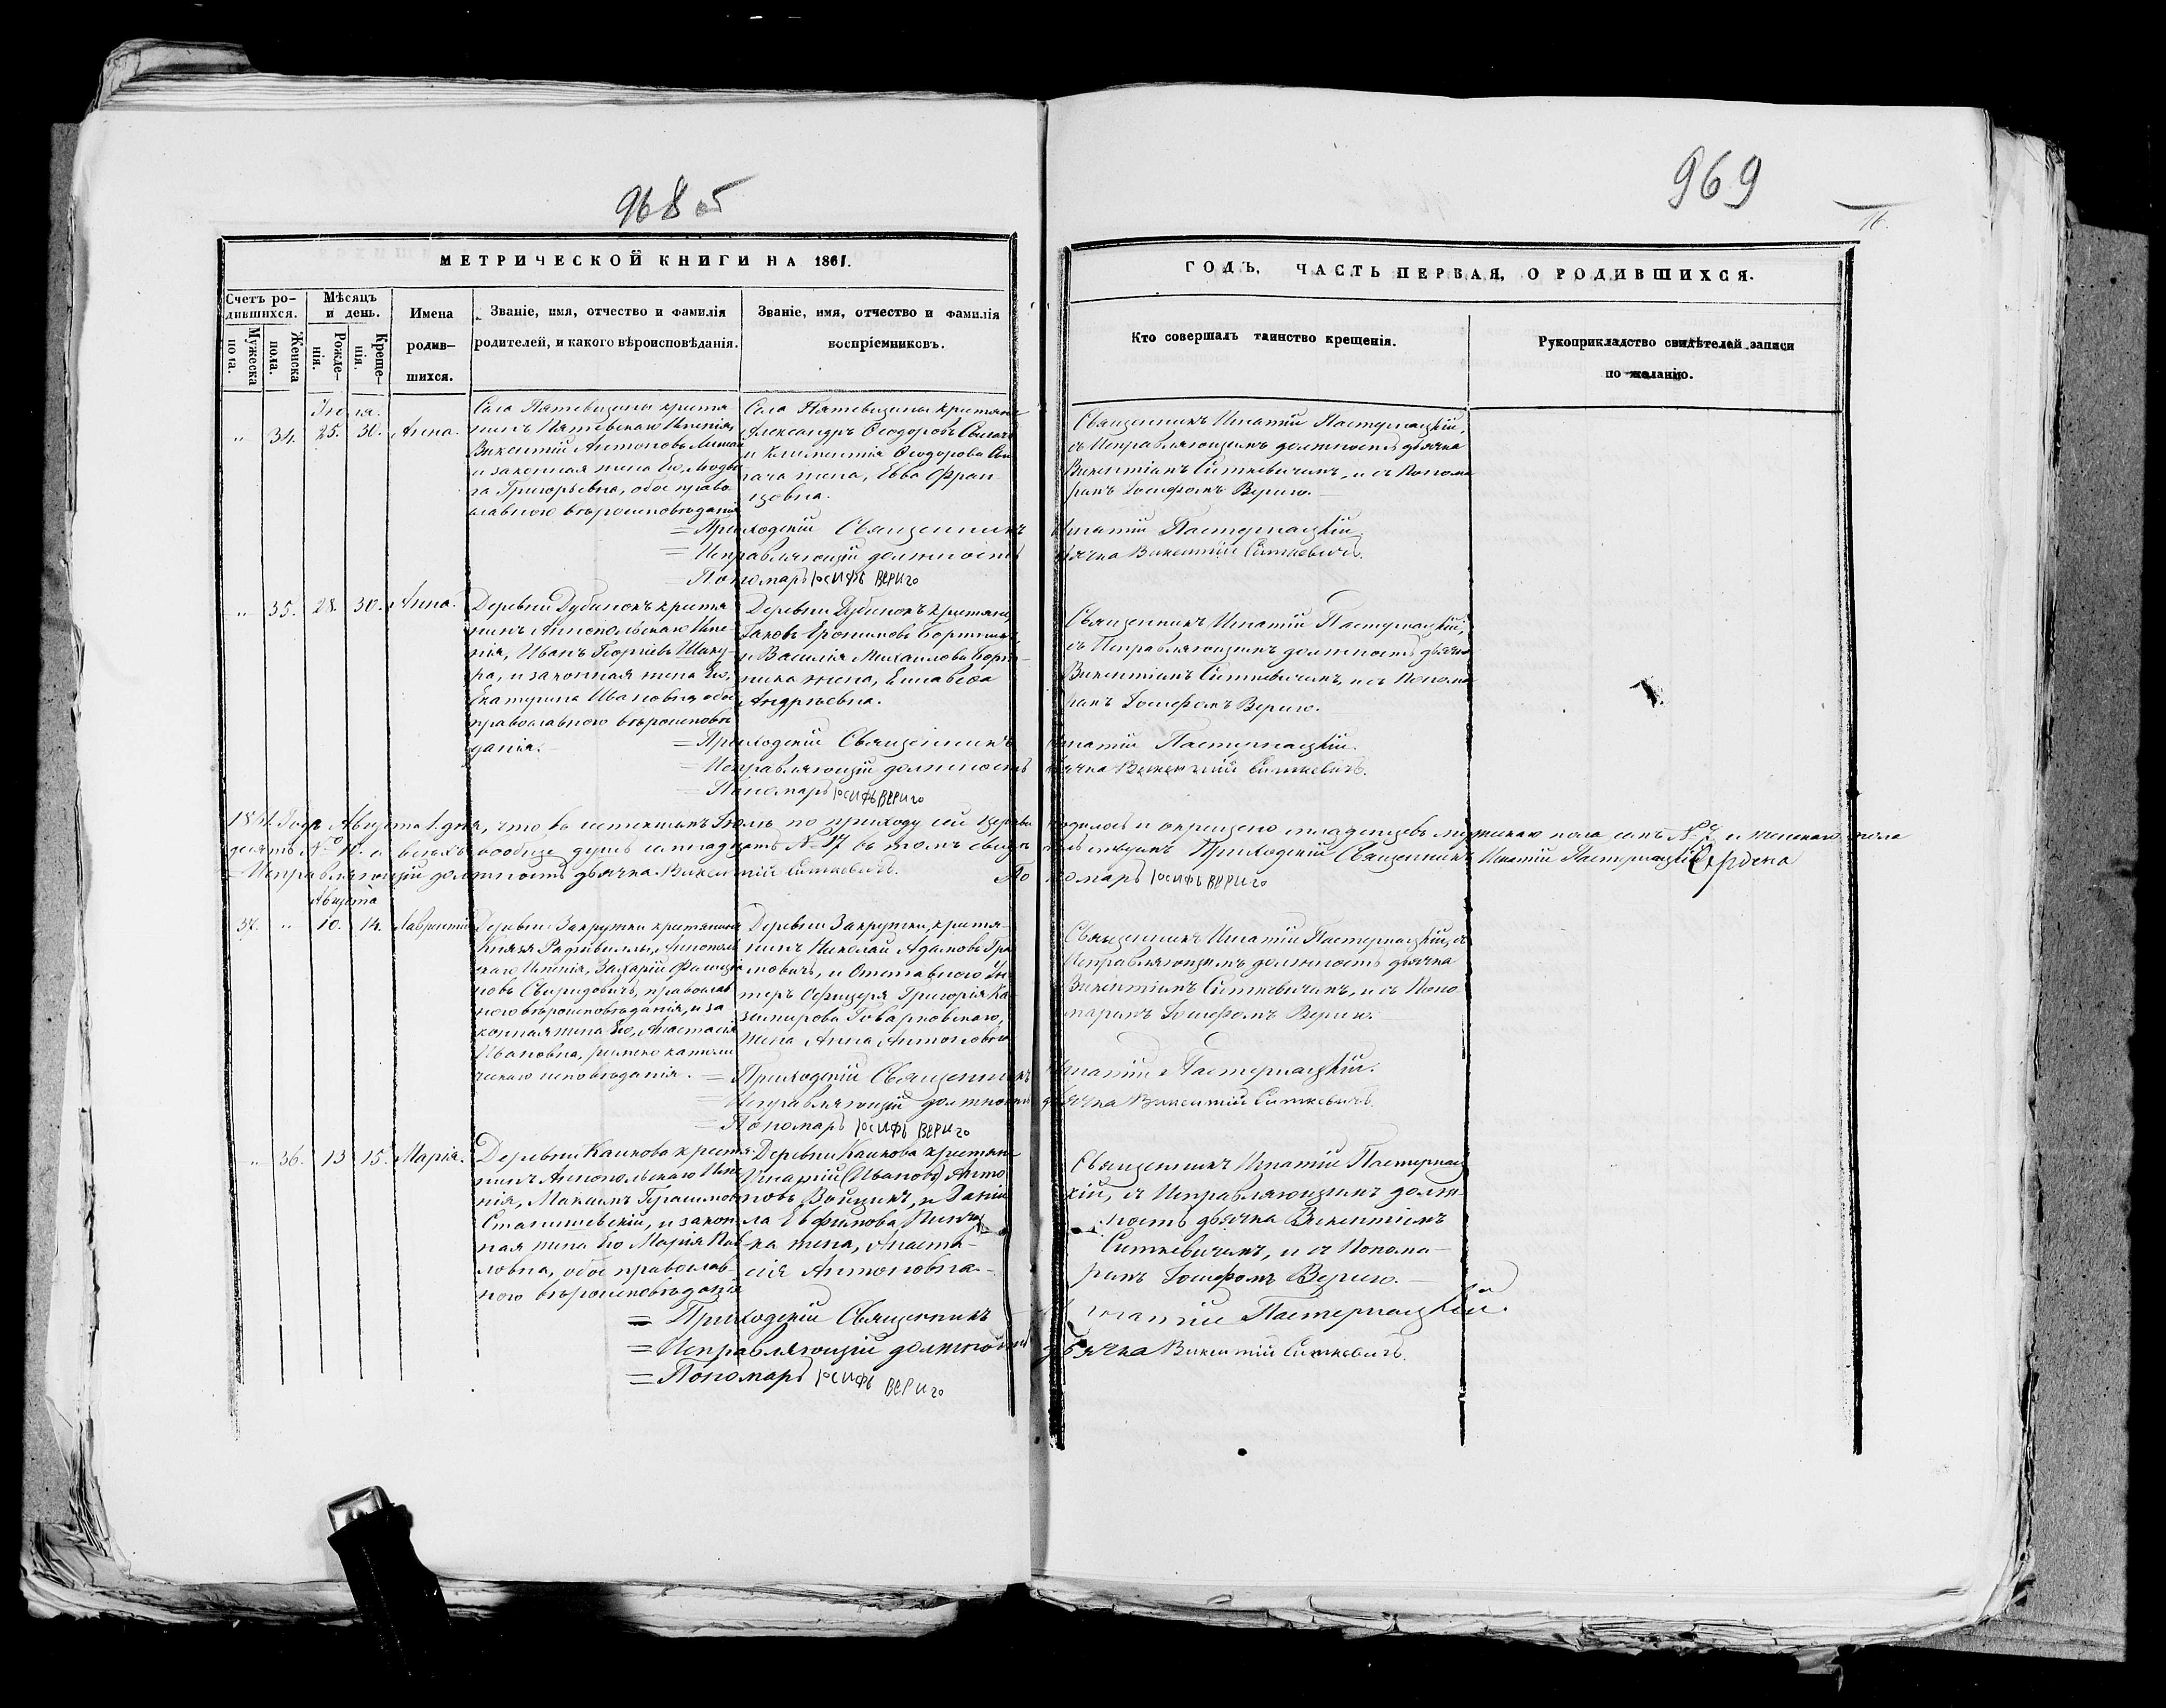 968 об
969
16.
МЕТРИЧЕСКОЙ КНИГИ НА 1861.
ГОДЪ, ЧАСТЬ ПЕРВАЯ, О РОДИВШИХСЯ.
Счетъ ро-
дившихся.
Мужеска
пола.
Женска
пола.
Мѣсяцъ
и день.
Рожде-
нія.
Креще-
нія.
Имена
родив-
шихся.
Званіе, имя, отчество и фамилія
родителей, и какого вѣроисповѣданія.
Званіе, имя, отчество и фамилія
воспріемниковъ.
Кто совершалъ таинство крещенія.
Рукоприкладство свидѣтелей записи
по желанію.
Іюля.
„ 34. 25. 30. Анна.
Села Пятевщины крестя-
нинъ Имѣнія,
Викентій Антоновъ
и законная жена Его,
Григорьевна, обое право-
славного вѣроисповѣданія
Села Пятевщины крестяне
Александръ Ѳеодоровъ
и Климентія Ѳеодорова
жена, Евва Фран-
цовна.
Священникъ Игнатій Пастернацкій,
съ Исправляющимъ должность дьячка
Викентіемъ Ситкевичемъ, и съ Понома
ремъ Іосифомъ Вериго.
= Приходскій Священникъ Игнатій Пастернацкій
= Исправляющій должность дьячка Викентій Ситкевичъ.
= Пономарь Іосифъ Вериго
„ 35. 28. 30. Анна.
Деревни Дубинокъ крестя
нинъ Аннопольскаго Имѣ-
нія, Иванъ Георгіевъ
и законная жена Его,
Екатерина Ивановна, обое
православного вѣроисповѣ
данія.
Деревни Дубинокъ крестяне,
Іаковъ Еронимовъ Бортникъ
и Василія Михаилова Борт-
ника жена, Елисавеѳа
Андреевна.
Священникъ Игнатій Пастернацкій,
съ Исправляющимъ должность дьячка
Викентіемъ Ситкевичемъ, и съ Понома
ремъ Іосифомъ Вериго.
= Приходскій Священникъ Игнатій Пастернацкій.
= Исправляющій должность дьячка Викентій Ситкевичъ.
= Пономарь Іосифъ Вериго
1861. Года Августа 1. дня, что въ истекшемъ Іюлѣ по приходу сей Церкви родилось и окрещено младенцевъ мужескаго пола семь №7. и женскаго пола
десять №10. а всѣхъ вообще душъ семнадцать №17 въ томъ Приходскій Священникъ Игнатій Пастернацкій
= Исправляющій должность дьячка Викентій Ситкевичъ. Пономарь Іосифъ Вериго
Августа
37. „ 10. 14. Лаврентій
Деревни Закрутки крестянинъ
Князя Радзивиллы, Аннополь
скаго Имѣнія, Захарій
Свиридовичъ, православ
ного вѣроисповѣданія, и за
конная жена Его, Анастасія
Ивановна, римско католи
ческаго исповѣданія.
Деревни Закрутки, крестя-
нинъ Николай Адамовъ
и Отставного Ун
теръ Офицера Григорія Ка-
зимирова
жена Анна Антоновна
Священникъ Игнатій Пастернацкій, съ
Исправляющимъ должность дьячка
Викентіемъ Ситкевичемъ, и съ Поно
маремъ Іосифомъ Вериго.
= Приходскій Священникъ Игнатій Пастернацкій.
= Исправляющій должность дьячка Викентій Ситкевичъ.
= Пономарь Іосифъ Вериго
„ 36. 13 15. Марія.
Деревни Каикова крестя-
нинъ Аннопольскаго Имѣ
нія, Максимъ Герасимовъ
Станишевскій, и закон
ная жена Его Марія Пав
ловна, обое православ-
ного вѣроисповѣданія
Деревни Каикова крестяне
Игнатій (Ивановъ) Анто
новъ Войцикъ, и Даніи
ла Евфимова
жена, Анаста-
сія Антоновна.
Священникъ Игнатій Пастернац
кій, съ Исправляющимъ долж-
ность дьячка Викентіемъ
Ситкевичемъ, и съ Понома-
ремъ Іосифомъ Вериго.
= Приходскій Священникъ Игнатій Пастернацкій.
= Исправляющій должность дьячка Викентій Ситкевичъ.
= Пономарь Іосифъ Вериго